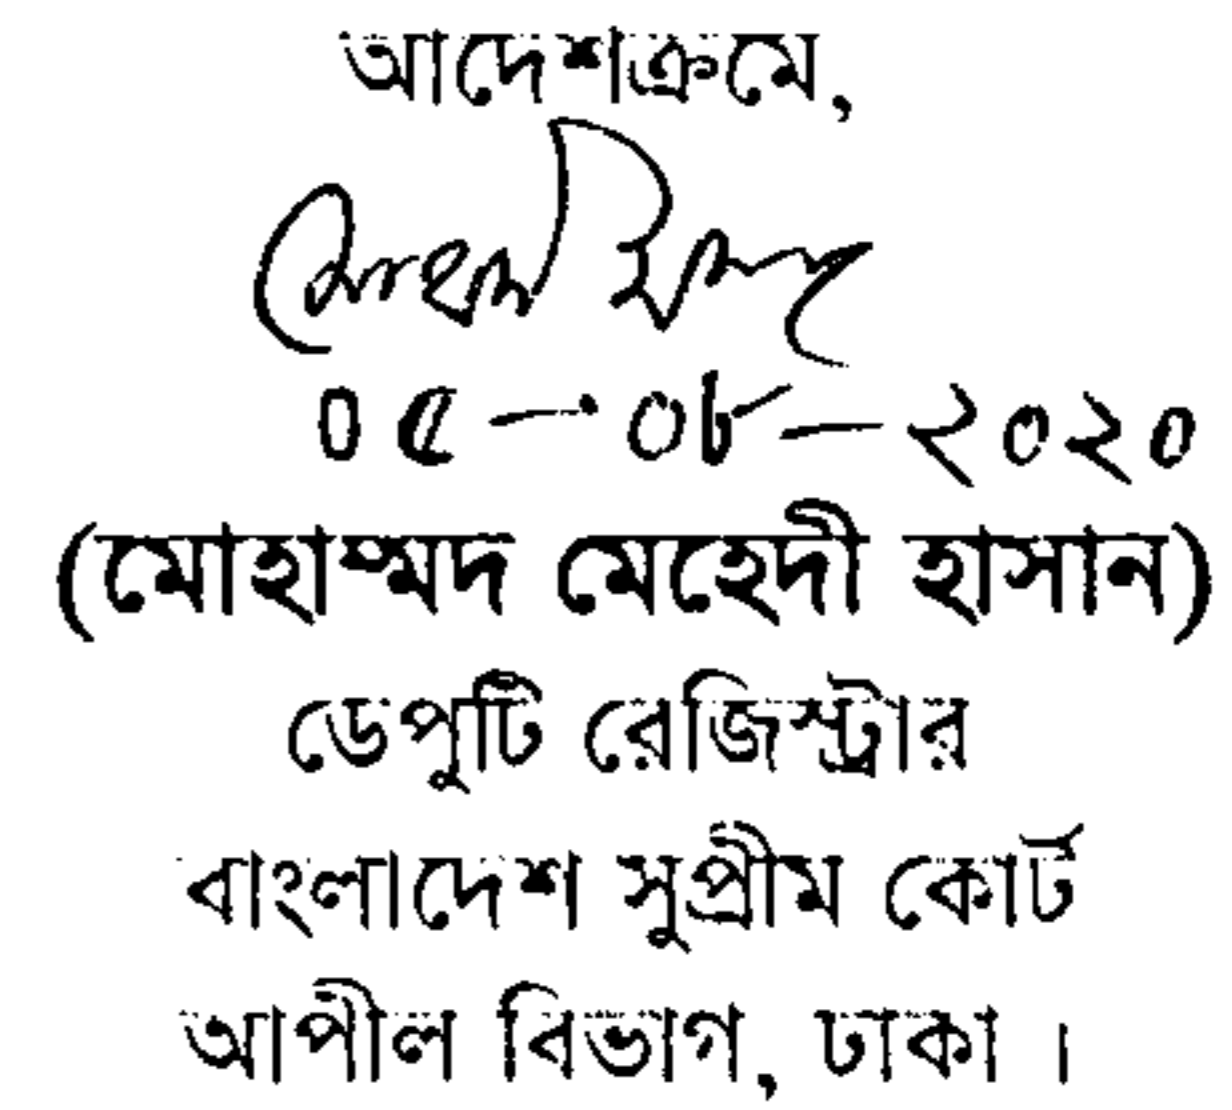 আদেশক্রমে,
০৫-০৮-২০২০
(মোহাম্মদ মেহেদী হাসান)
ডেপুটি রেজিস্ট্রার
বাংলাদেশ সুপ্রীম কোর্ট
আপীল বিভাগ, ঢাকা ।